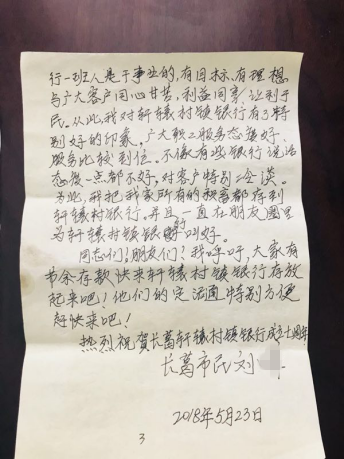 行一班人是干事业的,有目标、有理想
与广大客户同心甘苦,利益同享,让利于
民。从此,我对轩辕村镇银行有了特
别好的印象,广大职工服务态度好,
服务比较到位。不像有些银行说话
态度一点都不好,对客户特别冷淡。
为此,我把我家所有的积蓄都存到
轩辕村镇银行。并且一直在朋友圈里
为轩辕村镇银行叫好。
同志们!朋友们!我呼吁,大家有
节余存款快来轩辕村镇银行存放
起来吧!他们的定活通特别方便
赶快来吧!
热烈祝贺长葛轩辕村镇银行成立七周年
长葛市民刘
2018年5月23日
3